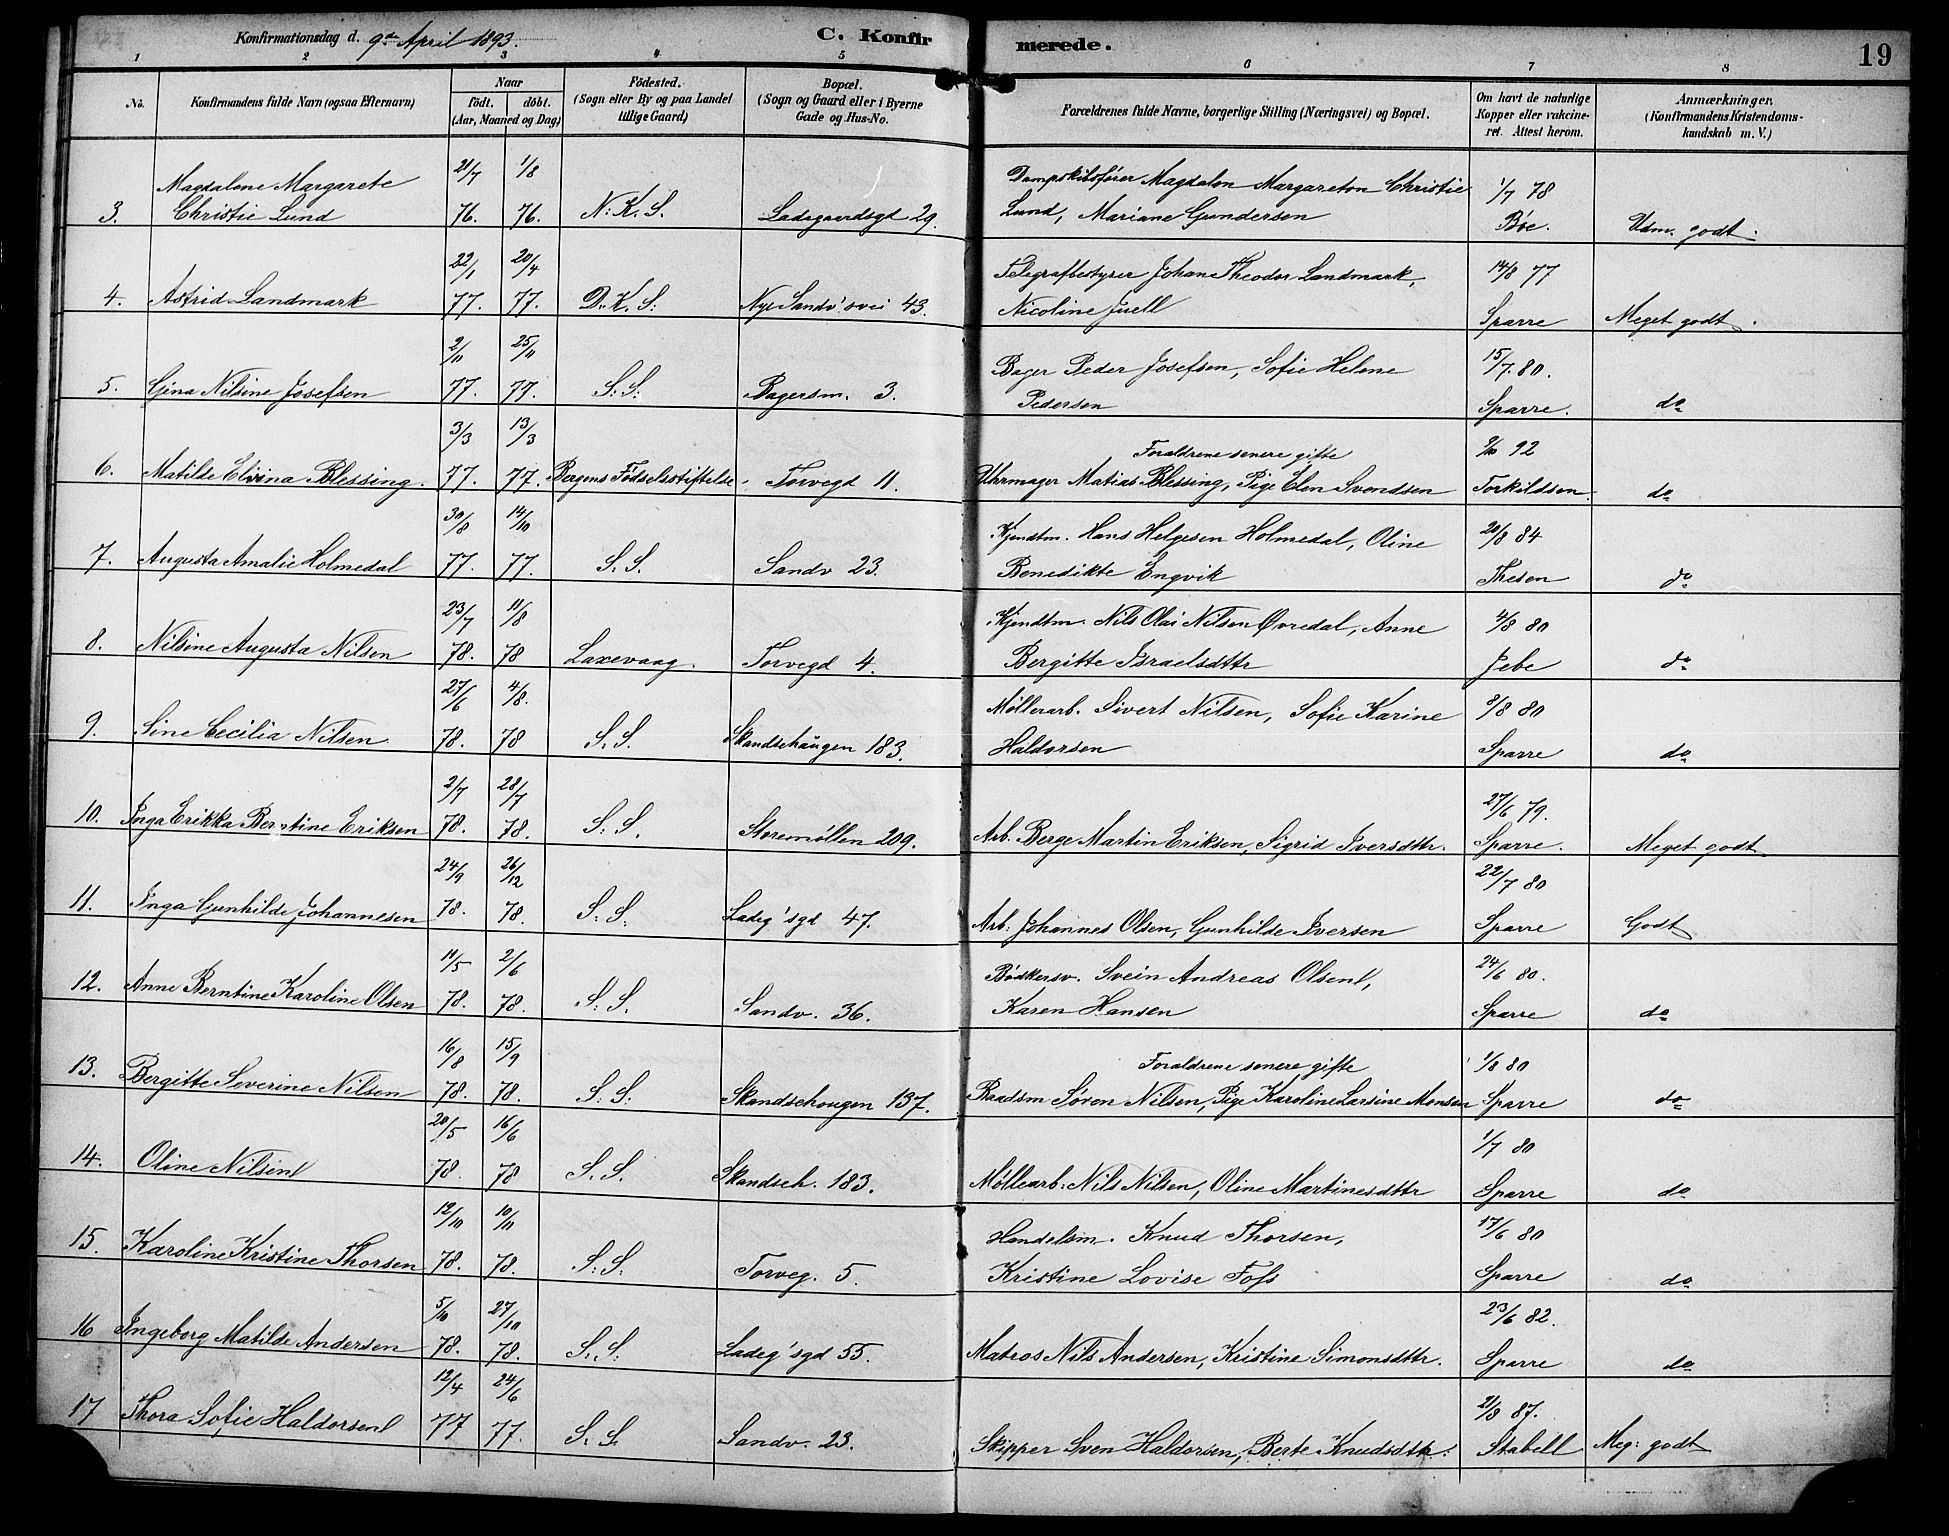 Konfirmationsdag d. 9de April 1893.
C. Konfir
merede.
19
1 2 3 4 5 6 7 8
No.
Konfirmandens fulde Navn (ogsaa Efternavn)
Naar
födt. döbt.
(Aar, Maaned og Dag)
Födested.
(Sogn eller By og paa Landet
tillige Gaard)
Bopæl.
(Sogn og Gaard eller i Byerne
Gade og Hus-No.
Forældrenes fulde Navne, borgerlige Stilling (Næringsvei) og Bopæl.
Om havt de naturlige
Kopper eller vakcine-
ret. Attest herom.
Anmærkninger.
(Konfirmandens Kristendoms-
kundskab m. V.)
Magdalene Margarete 21/7 1/8 Dampskibsfører Magdalon Margareton Christie 1/7 78
3. Christie Lund 76. 76. N. K. S. Ladegaardsgd 29. Lund, Mariane Gundersen Bøe. Udm. godt.
22/1 20/4 Telegrafbestyrer Johan Theodor Landmark, 14/8 77
4. Astrid Landmark 77. 77. D. K. S. Nye Sandv'svei 43. Nicoline Juell Sparre Meget godt.
2/11 25/11 Bager Peder Josefsen, Sofie Helene 15/7. 80.
5. Gina Nilsine Josefsen 77. 77. S. S. Bagersm. 3. Pedersen Sparre. do
3/3 13/3 Foraldrene senere gifte 92
6. Matilde Elisina Blessing. 77. 77. Bergens Fødselsstiftelse Torvegd 11. Uhrmager Matias Blessing, Pige Elen Svendsen Torkildsen. do
30/8 14/10 Kjøndtm. Hans Helgesen Holmedal, Oline 20/8 84
7. Augusta Amalie Holmedal 77. 77. S. S. Sandv 23. Benedikte Engvik Thesen do
23/7 11/8 Kjøndtm. Nils Olai Nilsen Øvredal, Anne 4/8 80
8. Nilsine Augusta Nilsen 78. 78 Laxevaag. Torvegd 4. Bergitte Israelsdttr Jebe do
27/6 4/8. Møllerarb. Sivert Nilsen, Sofie Karine 3/8 80
9. Sine Cecilia Nilsen 78. 78 S. S. Skandsehaugen 183. Haldorsen Sparre do
2/7 28/7 27/6 79.
10. Inga Erikka Berntine Eriksen 78. 78. S. S. Storemøllen 209. Arb. Berge Martin Eriksen, Sigrid Iversdttr. Sparre. Meget godt
24/9 26/12 22/7 80
11. Inga Gunhilde Johannesen 78. 78. S. S. Ladeg'sgd 47. Arb. Johannes Olsen, Gunhilde Iversen Sparre Godt
19/5 2/6 Bødkersv. Svein Andreas Olsen, 24/6 80.
12. Anne Berntine Karoline Olsen 78. 78. S. S. Sandv. 36. Karen Hansen Sparre do
16/8 15/9 Foraldrene senere gifte 1/8 80
13. Bergitte Severine Nilsen 78. 78. S. S. Skandsehougen 137. Baadsm Søren Nilsen, Pige Karoline Larsine Monsen Sparre do
20/5 16/6 1/7 80
14. Oline Nilsen 78. 78 S. S. Skandseh. 183. Møllearb. Nils Nilsen, Oline Martinesdttr Sparre do
12/10 10/11 Handelsm. Knud Thorsen, 17/6 80
15. Karoline Kristine Thorsen 78. 78. S. S. Torveg. 5. Kristine Lovise Foss Sparre do
5/10 27/10 23/6 82.
16 Ingeborg Matilde Andersen 78. 78. S. S. Ladeg'sgd 55. Matros Nils Andersen, Kristine Simonsdttr. Sparre do
12/4 24/6 21/3 87.
17 Thora Sofie Haldorsen 77 77. S. S. Sandv. 23. Skipper Sven Haldorsen, Berte Knudsdttr. Stabell Meg: godt